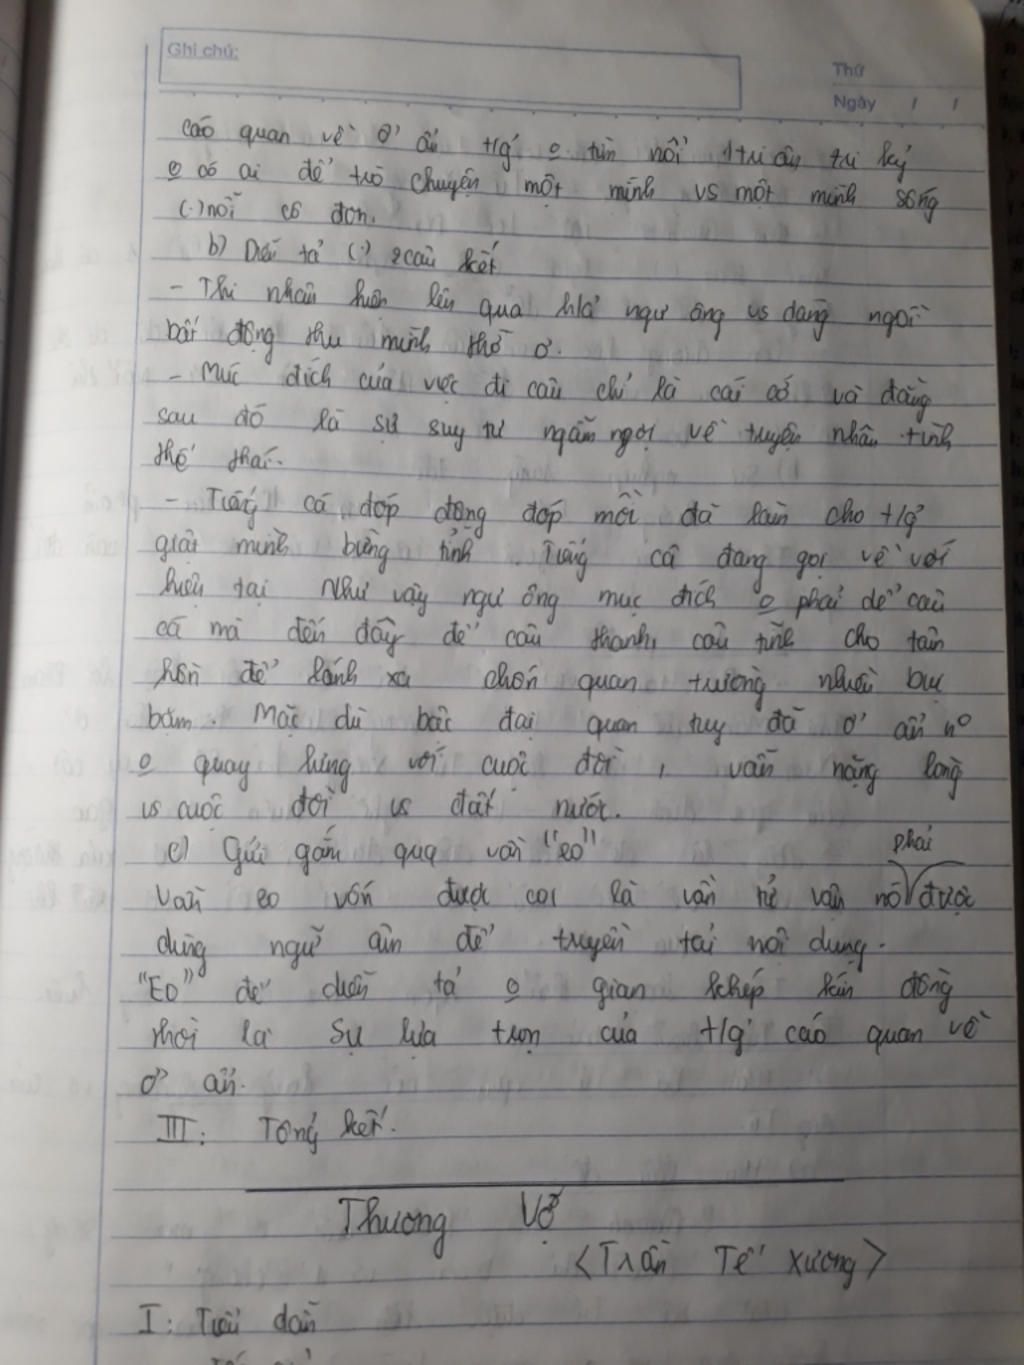 Ghi chú:
Thứ
Ngày / /
cáo quan về ở ẩn t/g' o tìm nổi 1 tri ân, tri kỷ
o có ai để trò chuyện một mình vs một mình sống
(.) nỗi cô đơn.
b) Diễn tả (.) 2 câu kết
- Thi nhân hiện lên qua h/ả ngư ông vs dáng ngồi
bất động thu mình thờ ơ.
- Mục đích của việc đi câu chỉ là cái cớ và đằng
sau đó là sự suy tư ngẫm ngợi về truyện nhân tình
thế thái.
- Tiếng cá đớp động đớp mồi đã làm cho t/g'
giật mình bừng tỉnh. Tiếng cá đang gọi về với
hiện tại Như vậy ngư ông mục đích o phải để câu
cá mà đến đây để câu thanh, câu tĩnh cho tâm
hồn để lánh xa chốn quan trường nhiều bụi
bặm. Mặc dù bậc đại quan tuy đã ở ẩn no
o quay lưng với cuộc đời, vẫn nặng lòng
vs cuộc đời vs đất nước.
c) Gửi gắm qua vần "eo"
phải
Vần eo vốn được coi là vần tử vận nó được
dùng ngữ âm để truyền tải nội dung.
"Eo" để diễn tả o gian khép kín đồng
thời là sự lựa trọn của t/g' cáo quan về
ở ẩn.
III: Tổng kết.
Thương Vợ
<Trần Tế Xương>
I: Tiểu dẫn